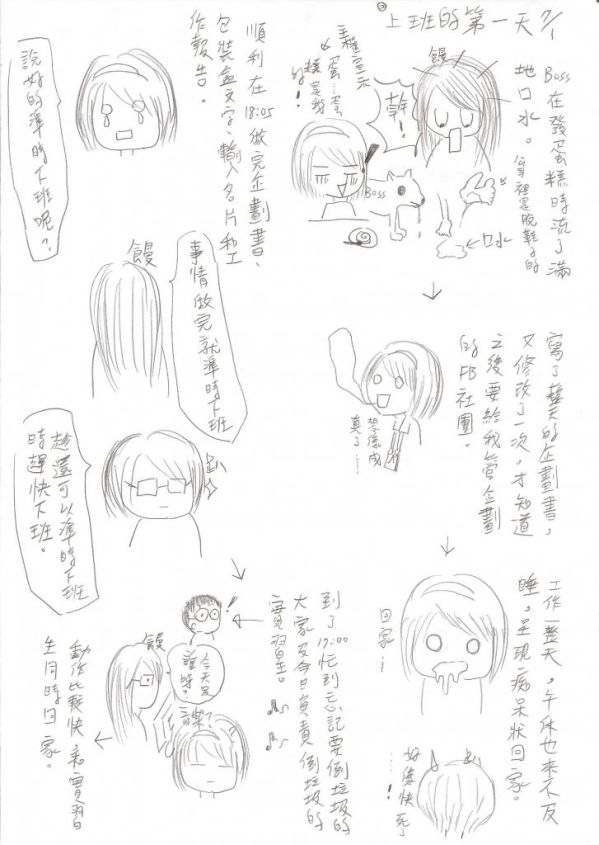 上班的第一天 7/1
Boss在發蛋糕時流了滿
地口水。
饅
幹!
主權宣示
蛋…蛋
糕是我
的!
Boss
口水
寫了整天的企劃書,
又修改了一次,才知道
之後要給我管企劃
的FB社團。
想像成
真了……
工作一整天,午休也來不及
睡,呈現痴呆狀回家。
回家…
好像快死了
…!
順利在18:05做完企劃書、
包裝盒文字、輸入名片和工
作報告。
說好的準時下班呢?
饅
事情做完就準時下班
趁還可以準時下班
時趕快下班。
到了19:00忙到忘記要倒垃圾的
大家及今日負責倒垃圾的
實習生。
!
今天是
誰呀?
饅
音樂?
動作比較快和實習
生同時回家。